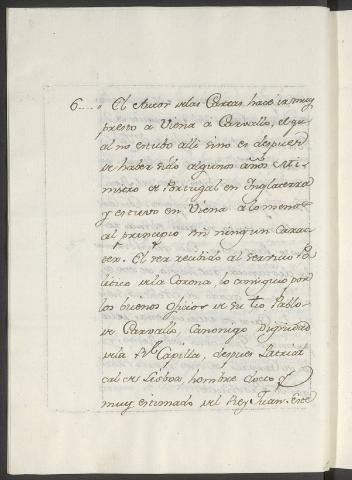 6.... " El Autor de las Cartas hace ir muy
presto a Viena a Carvallo, el qu-
al no estubo alli sino es despues
de haber sido algunos años Mi-
nistro de Portugal en Inglaterra
y estuvo en Viena a lo menos
al principio sin ningun Carac-
ter. El ser recibido al servicio Po-
litico de la Corona, lo consiguio por
los buenos oficios de su tio Pablo
de Carvallo, Canonigo Dignidad
de la Rl. Capilla, despues Patriar
cal de Lisboa, hombre docto y
muy estimado del Rey Juan. Este